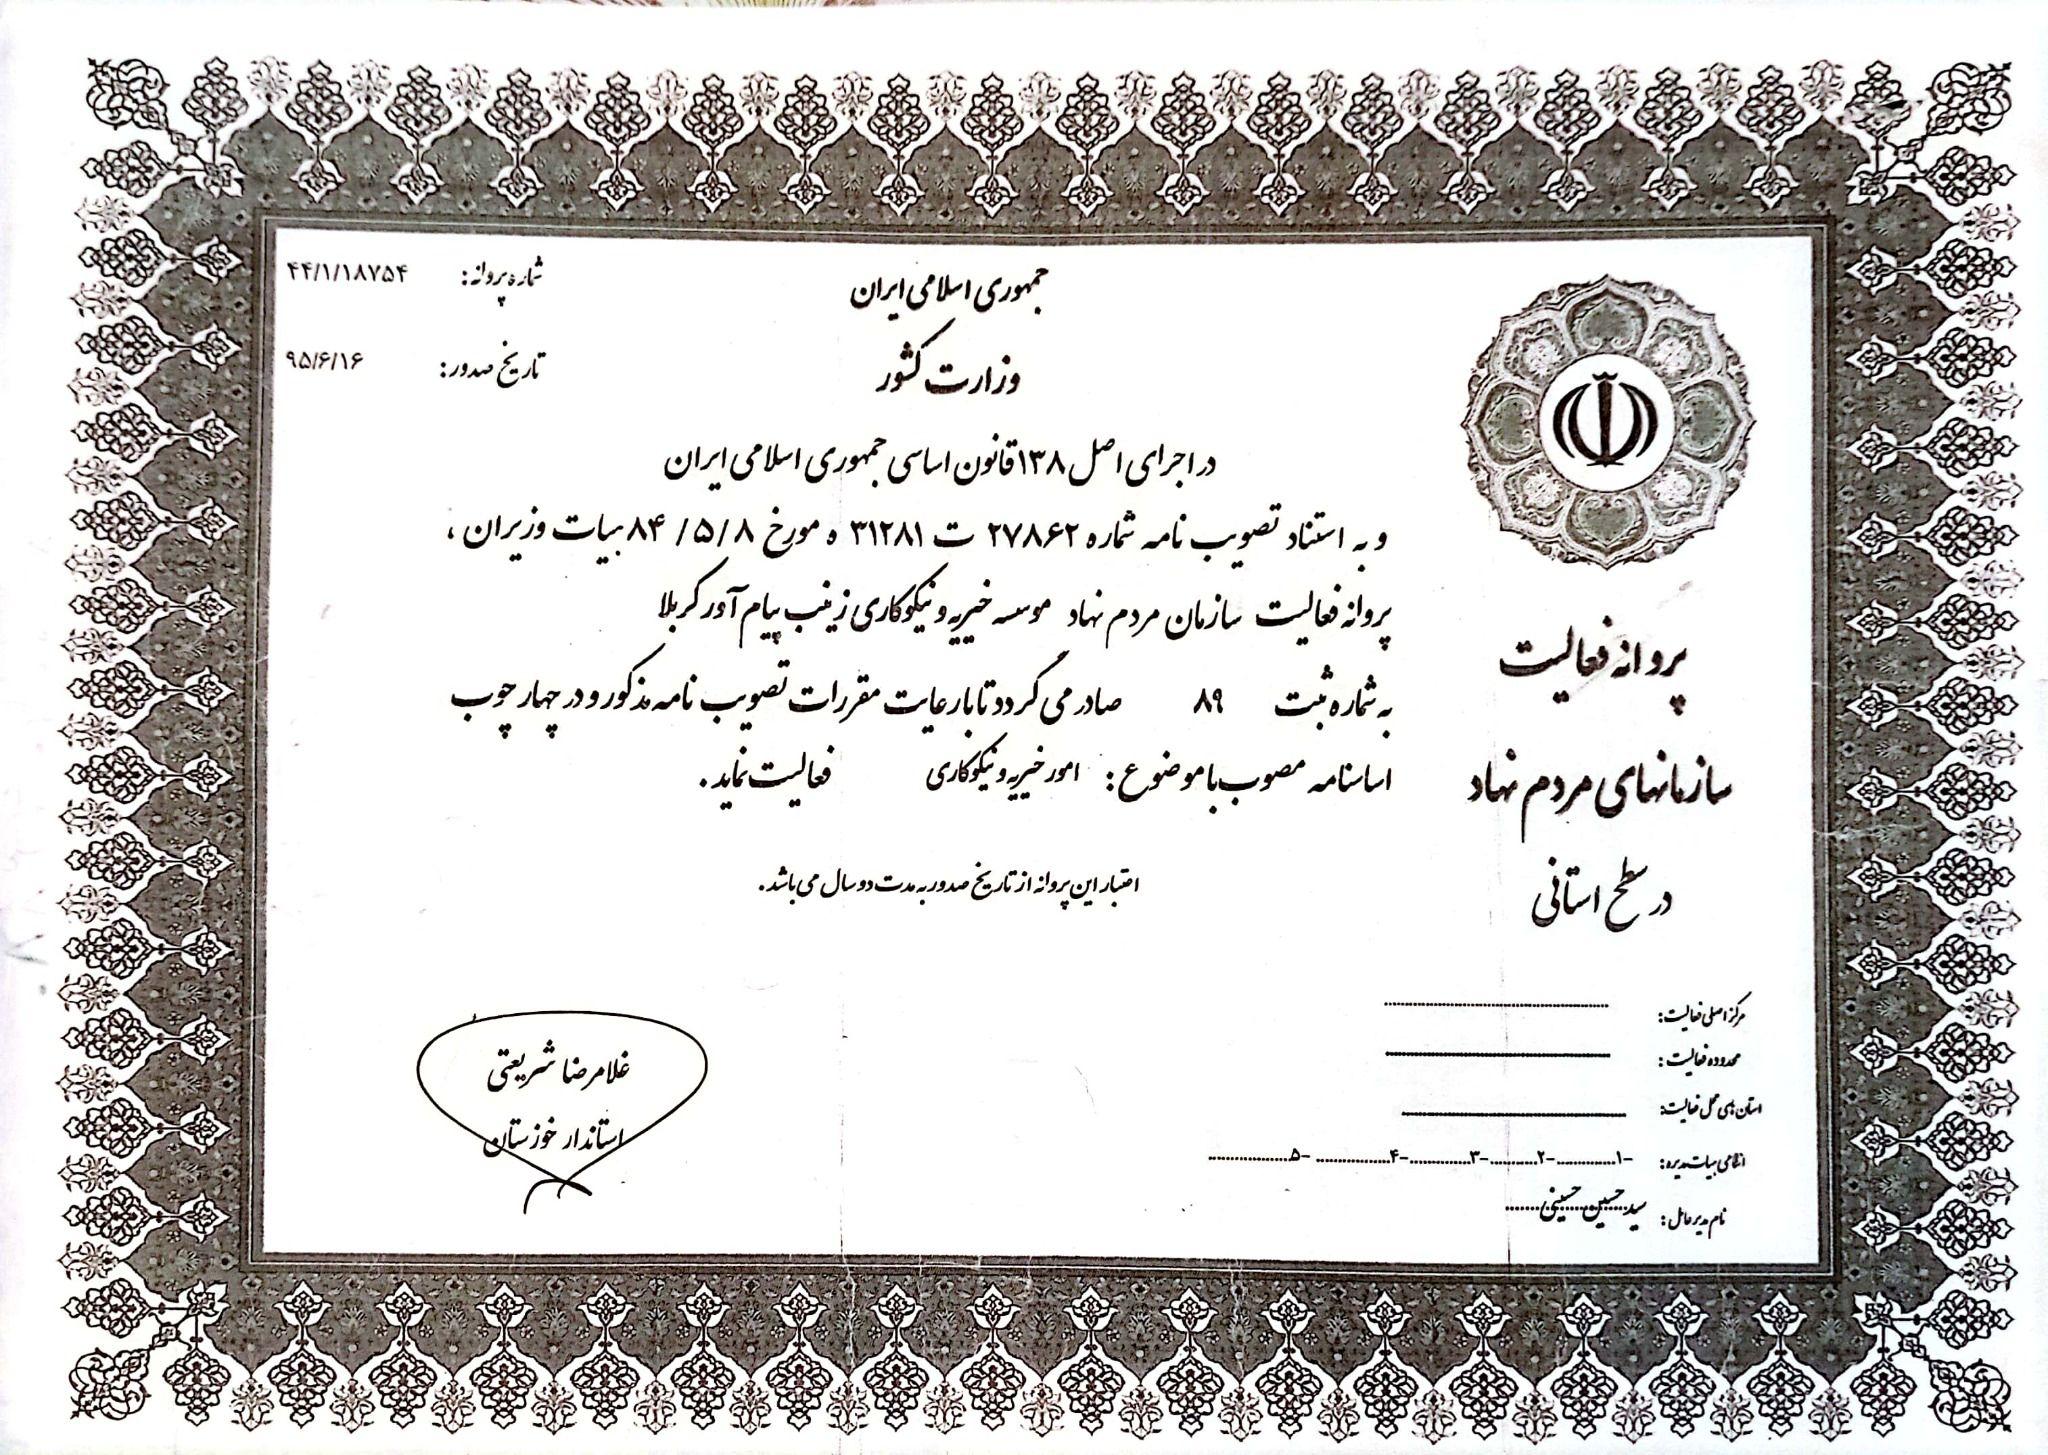 جمهوری اسلامی ایران
وزارت کشور
شماره پروانه: ۴۴/۱/۱۸۷۵۴
تاریخ صدور: ۹۵/۶/۱۶
در اجرای اصل ۱۳۸ قانون اساسی جمهوری اسلامی ایران
و به استناد تصویب نامه شماره ۲۷۸۶۲ ت ۳۱۲۸۱ ه مورخ ۸ /۵ /۸۴ هیات وزیران ،
پروانه فعالیت سازمان مردم نهاد موسسه خیریه و نیکوکاری زینب پیام آور کربلا
به شماره ثبت ۸۹ صادر می گردد تا با رعایت مقررات تصویب نامه مذکور و در چهار چوب
اساسنامه مصوب با موضوع : امور خیریه و نیکوکاری فعالیت نماید .
اعتبار این پروانه از تاریخ صدور به مدت دو سال می باشد .
پروانه فعالیت
سازمانهای مردم نهاد
در سطح استانی
مرکز اصلی فعالیت :
محدوده فعالیت :
استان های محل فعالیت :
اعضای هیات مدیره : ۱-............ ۲-............ ۳-............ ۴-............ ۵-............
نام مدیر عامل : سید حسین حسینی
غلامرضا شریعتی
استاندار خوزستان